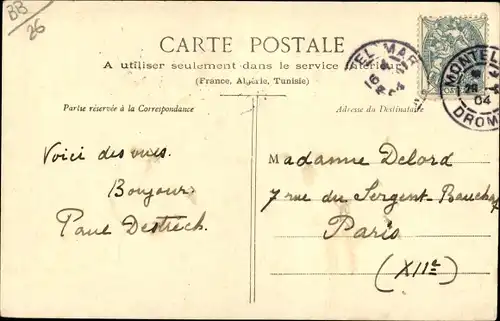 BB
26
CARTE POSTALE
A utiliser seulement dans le service intérieur
(France, Algérie, Tunisie)
Partie réservée à la Correspondance
Adresse du Destinataire
EL MAR
04
MONTEL
04
DROM
Voici des vues.
Bonjour
Paul
Madame Delord
7 rue du Sergent-Bauchat
Paris
(XIIe)